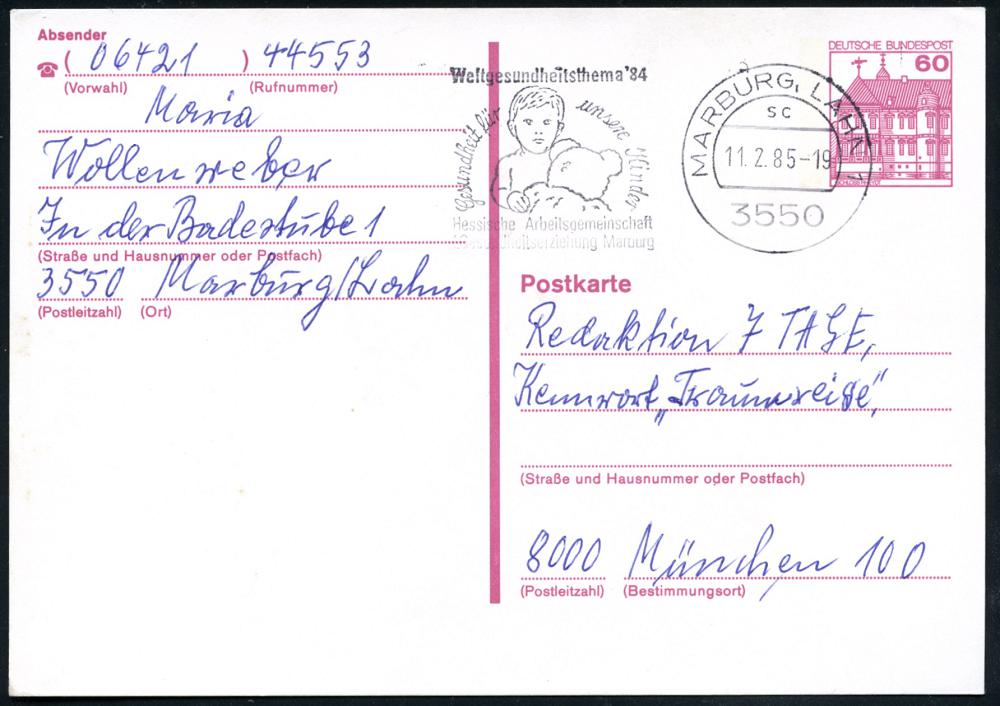 Absender
( 06421 ) 44553
(Vorwahl) (Rufnummer)
Maria
Wollenweber
In der Badestube 1
(Straße und Hausnummer oder Postfach)
3550 Marburg/Lahn
(Postleitzahl) (Ort)
Weltgesundheitsthema '84
Gesundheit für unsere Kinder
Hessische Arbeitsgemeinschaft
Gesundheitserziehung Marburg
MARBURG, LAHN 1
sc
11.2.85-19
3550
DEUTSCHE BUNDESPOST
60
SCHLOSS RHEYDT
Postkarte
Redaktion 7 TAGE,
Kennwort „Traumreise",
(Straße und Hausnummer oder Postfach)
8000 München 100
(Postleitzahl) (Bestimmungsort)